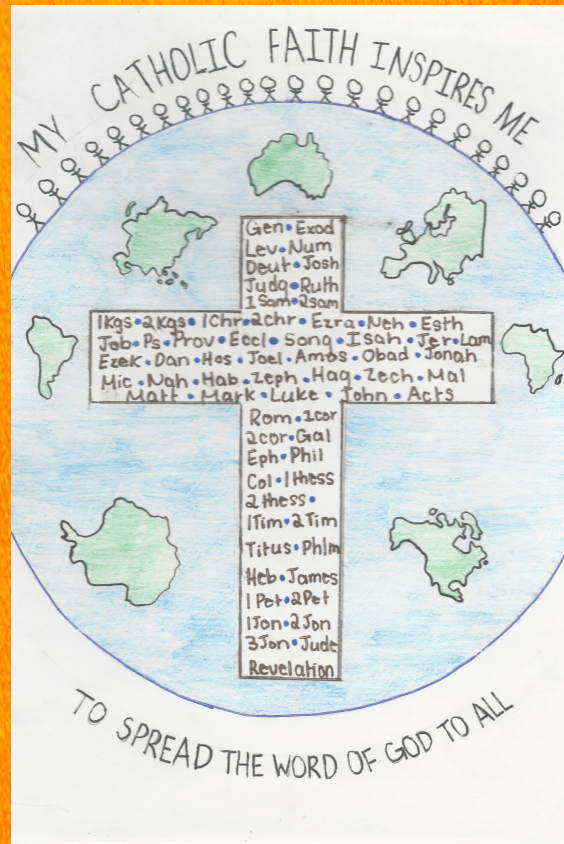 MY CATHOLIC FAITH INSPIRES ME
Gen • Exod
Lev • Num
Deut • Josh
Judg • Ruth
1 Sam • 2sam
1Kgs • 2Kgs • 1Chr • 2chr • Ezra • Neh • Esth
Job • Ps • Prov • Eccl • Song • Isah • Jer • Lam
Ezek • Dan • Hos • Joel • Amos • Obad • Jonah
Mic • Nah • Hab • Zeph • Hag • Zech • Mal
Matt • Mark • Luke • John • Acts
Rom • 1cor
2cor • Gal
Eph • Phil
Col • 1thess
2thess •
1Tim • 2Tim
Titus • Phlm
Heb • James
1Pet • 2Pet
1Jon • 2Jon
3Jon • Jude
Revelation
TO SPREAD THE WORD OF GOD TO ALL